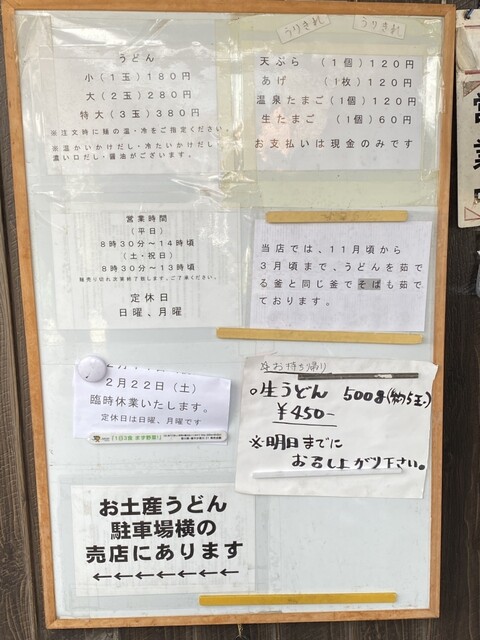 うりきれ
うりきれ
うどん
小(1玉)180円
大(2玉)280円
特大(3玉)380円
※注文時に麺の温・冷をご指定ください。
※温かいかけだし・冷たいかけだし
濃い口だし・醤油がございます。
天ぷら (1個)120円
あげ (1枚)120円
温泉たまご(1個)120円
生たまご (1個)60円
お支払いは現金のみです
営業時間
(平日)
8時30分~14時頃
(土・祝日)
8時30分~13時頃
麺売り切れ次第終了致します。ご了承ください。
定休日
日曜、月曜
当店では、11月頃から
3月頃まで、うどんを茹で
る釜と同じ釜でそばも茹で
ております。
2月22日(土)
臨時休業いたします。
定休日は日曜、月曜です
「1日3食 まず野菜!」
お持ち帰り
○生うどん 500g(約5玉)
¥450-
※明日までに
お召し上がり下さい。
お土産うどん
駐車場横の
売店にあります
←←←←←←←
営業